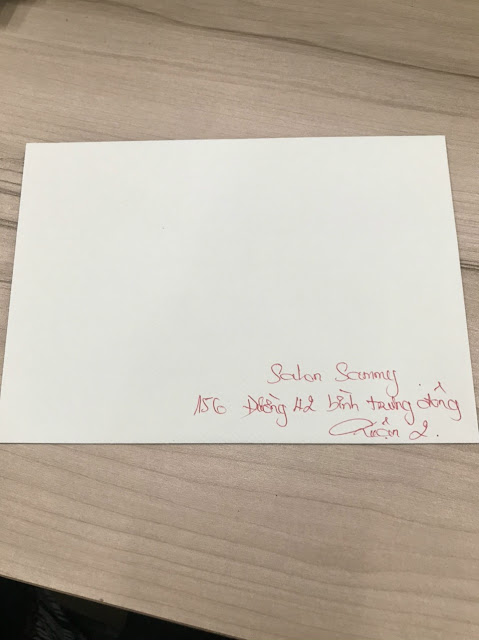 Salon Sammy
156 Đường 42 bình trưng đông
Quận 2.